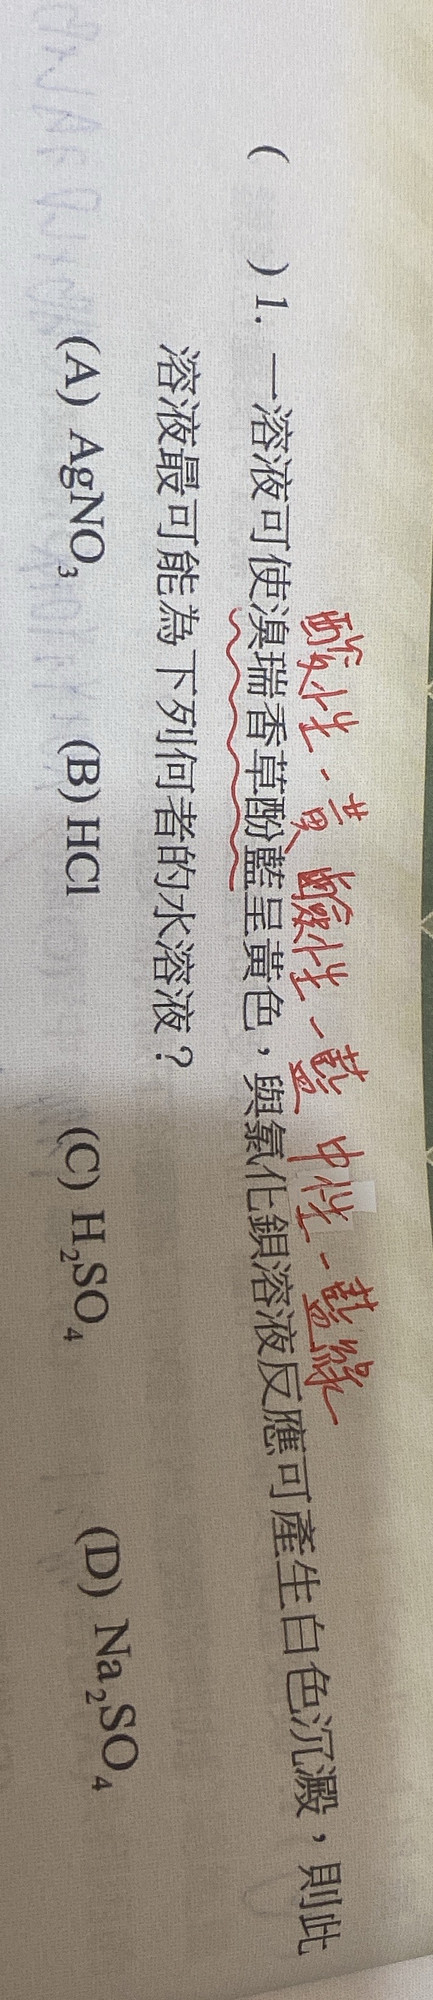 酸性-黃 鹼性-藍 中性-藍綠
( ) 1. 一溶液可使溴瑞香草酚藍呈黃色,與氯化鋇溶液反應可產生白色沉澱,則此
溶液最可能為下列何者的水溶液?
(A) AgNO₃ (B) HCl (C) H₂SO₄ (D) Na₂SO₄